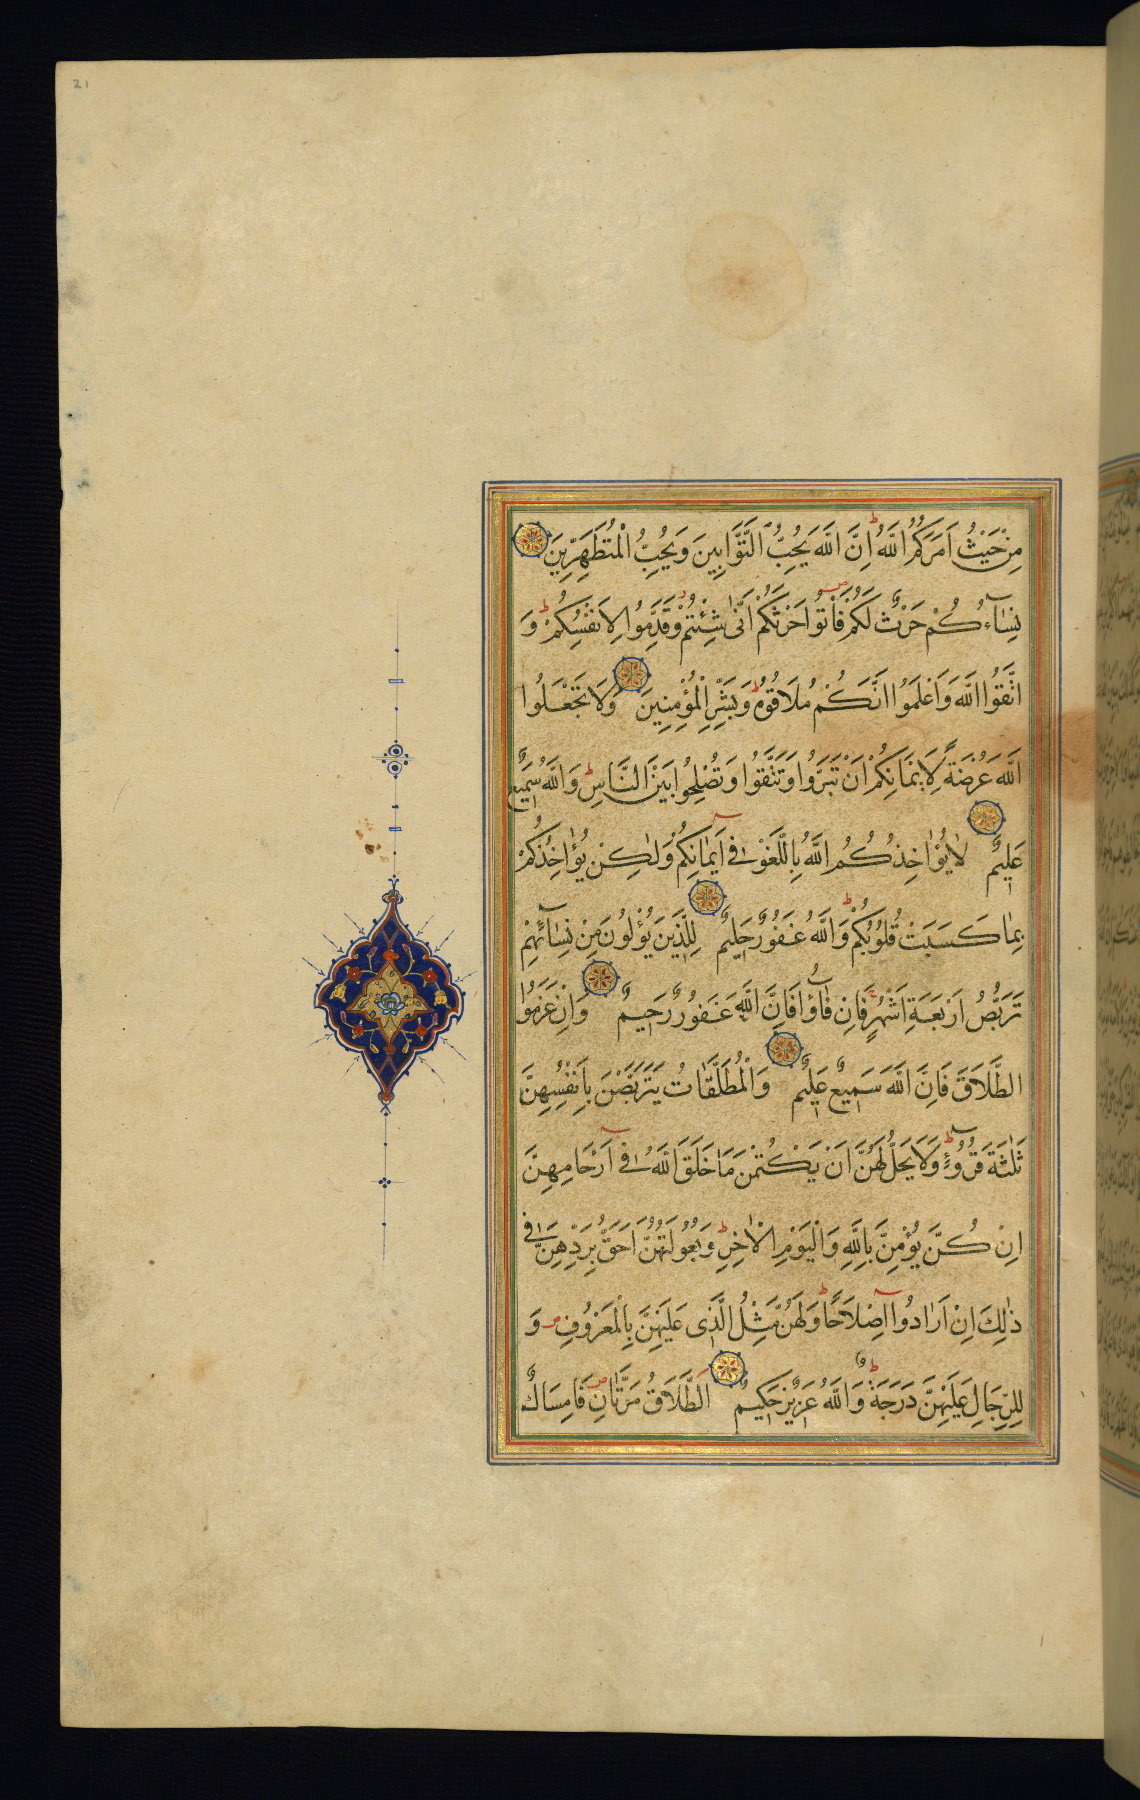 21
مِنْ حَيْثُ اَمَرَكُمُ اللّٰهُ ط اِنَّ اللّٰهَ يُحِبُّ التَّوَّابِينَ وَيُحِبُّ الْمُتَطَهِّرِينَ
نِسَآءُكُمْ حَرْثٌ لَكُمْ ص فَأْتُوا حَرْثَكُمْ اَنّٰى شِئْتُمْ ز وَقَدِّمُوا لِاَنْفُسِكُمْ ط وَ
اتَّقُوا اللّٰهَ وَاعْلَمُوا اَنَّكُمْ مُلَاقُوهُ ط وَبَشِّرِ الْمُؤْمِنِينَ وَلَا تَجْعَلُوا
اللّٰهَ عُرْضَةً لِاَيْمَانِكُمْ اَنْ تَبَرُّوا وَتَتَّقُوا وَتُصْلِحُوا بَيْنَ النَّاسِ ط وَاللّٰهُ سَمِيعٌ
عَلِيمٌ لَا يُؤَاخِذُكُمُ اللّٰهُ بِاللَّغْوِ فِى اَيْمَانِكُمْ وَلٰكِنْ يُؤَاخِذُكُمْ
بِمَا كَسَبَتْ قُلُوبُكُمْ ط وَاللّٰهُ غَفُورٌ حَلِيمٌ لِلَّذِينَ يُؤْلُونَ مِنْ نِسَآئِهِمْ
تَرَبُّصُ اَرْبَعَةِ اَشْهُرٍ ج فَاِنْ فَآؤُا فَاِنَّ اللّٰهَ غَفُورٌ رَحِيمٌ وَاِنْ عَزَمُوا
الطَّلَاقَ فَاِنَّ اللّٰهَ سَمِيعٌ عَلِيمٌ وَالْمُطَلَّقَاتُ يَتَرَبَّصْنَ بِاَنْفُسِهِنَّ
ثَلٰثَةَ قُرُوٓءٍ ط وَلَا يَحِلُّ لَهُنَّ اَنْ يَكْتُمْنَ مَا خَلَقَ اللّٰهُ فِىٓ اَرْحَامِهِنَّ
اِنْ كُنَّ يُؤْمِنَّ بِاللّٰهِ وَالْيَوْمِ الْاٰخِرِ ط وَبُعُولَتُهُنَّ اَحَقُّ بِرَدِّهِنَّ فِى
ذٰلِكَ اِنْ اَرَادُوٓا اِصْلَاحًا ط وَلَهُنَّ مِثْلُ الَّذِى عَلَيْهِنَّ بِالْمَعْرُوفِ ص وَ
لِلرِّجَالِ عَلَيْهِنَّ دَرَجَةٌ ط وَاللّٰهُ عَزِيزٌ حَكِيمٌ اَلطَّلَاقُ مَرَّتَانِ ص فَاِمْسَاكٌ